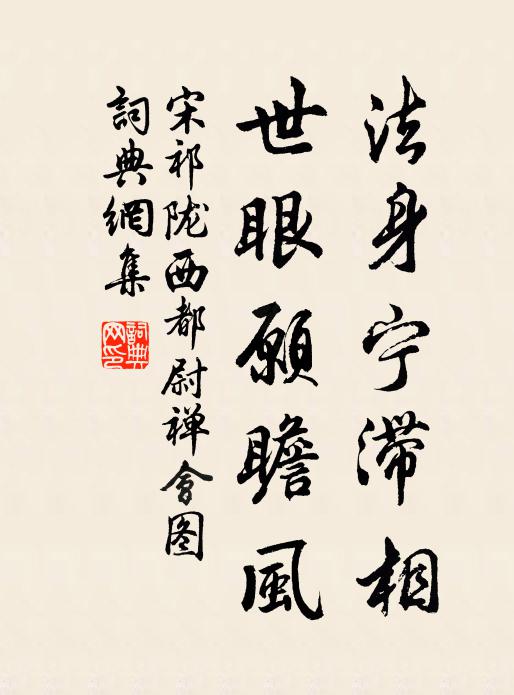 法身宁滞相
世眼愿瞻風
宋祁陇西都尉禅會图
詞典網集
詞典网印